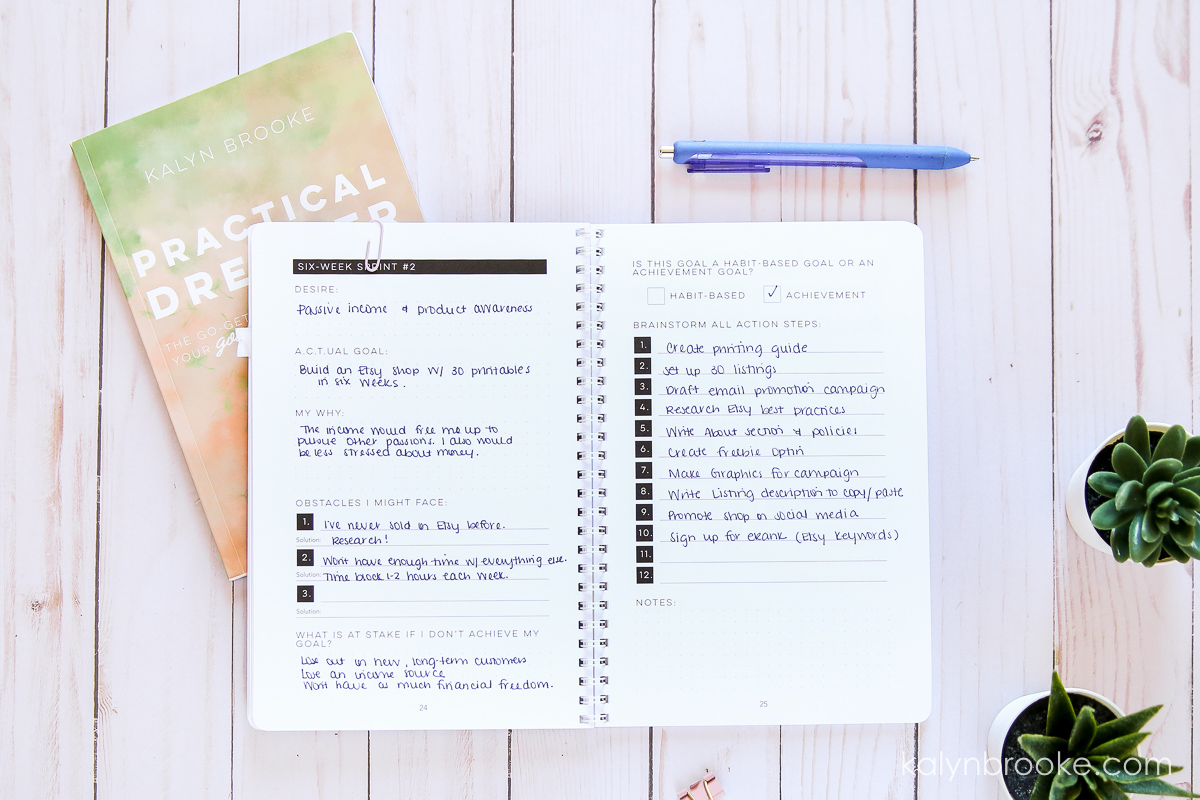 KALYN BROOKE
PRACTICAL
DRE ER
THE GO-GET
YOUR goa
SIX-WEEK SPRINT #2
DESIRE:
Passive income & product awareness
A.C.T.UAL GOAL:
Build an Etsy shop w/ 30 printables
in six weeks.
MY WHY:
The income would free me up to
pursue other passions. I also would
be less stressed about money.
OBSTACLES I MIGHT FACE:
1. I've never sold on Etsy before.
Solution: Research!
2. Won't have enough time w/ everything else.
Solution: Time block 1-2 hours each week.
3.
Solution:
WHAT IS AT STAKE IF I DON'T ACHIEVE MY
GOAL?
Lose out on new, long-term customers
Lose an income source
Won't have as much financial freedom.
24
IS THIS GOAL A HABIT-BASED GOAL OR AN
ACHIEVEMENT GOAL?
HABIT-BASED ✓ ACHIEVEMENT
BRAINSTORM ALL ACTION STEPS:
1. Create printing guide
2. Set up 30 listings
3. Draft email promotion campaign
4. Research Etsy best practices
5. Write About section & policies
6. Create freebie optin
7. Make Graphics for campaign
8. Write Listing description to copy/paste
9. Promote shop on social media
10. Sign up for eRank (Etsy keywords)
11.
12.
NOTES:
25
kalynbrooke.com